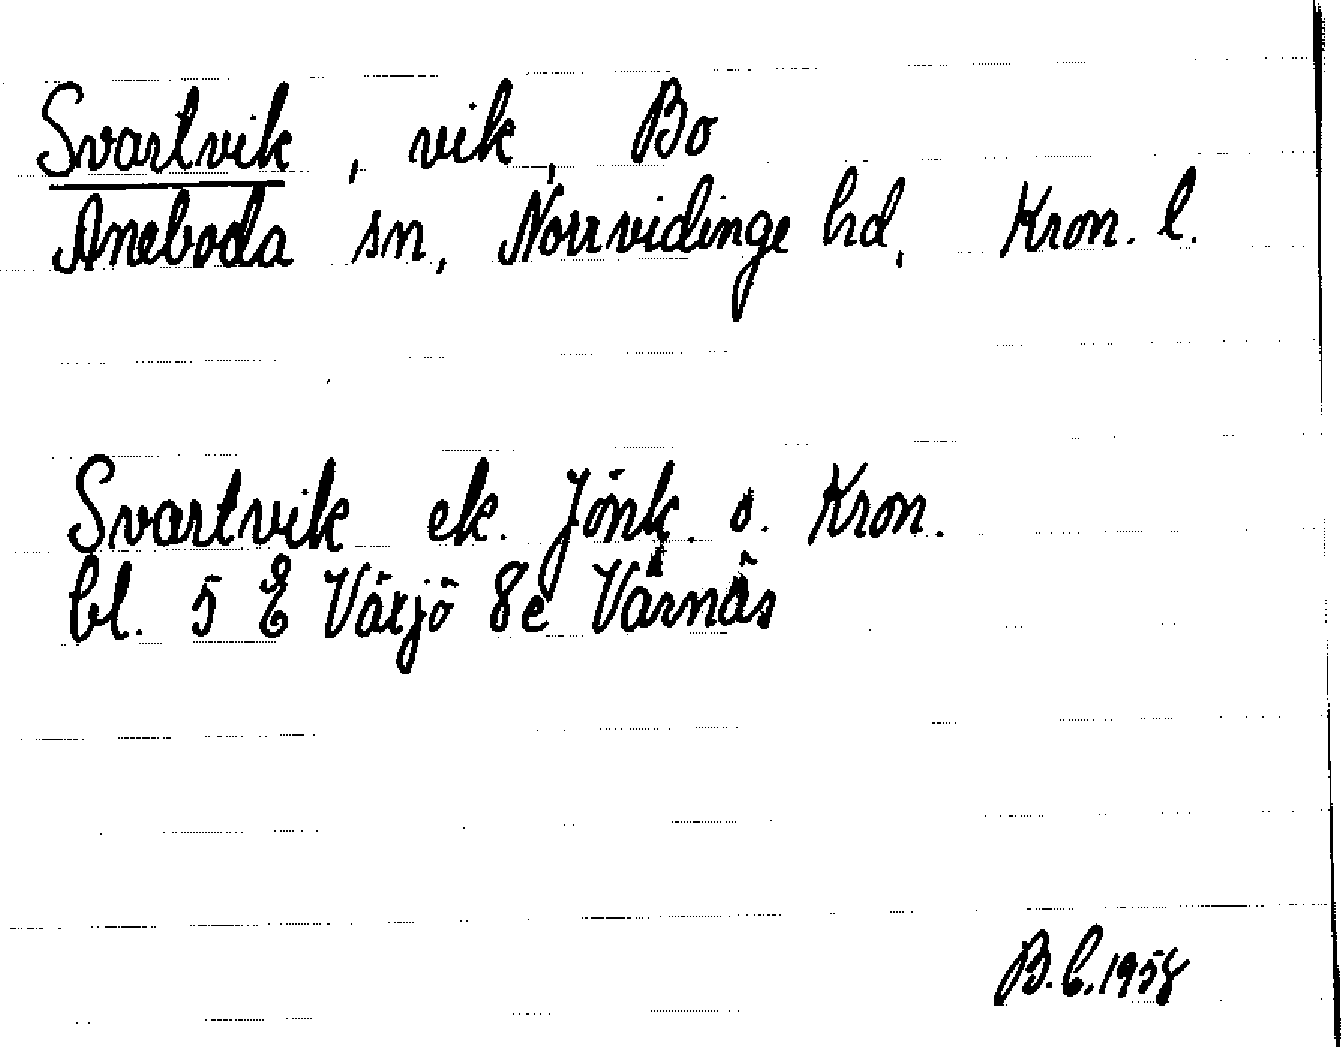 Svartvik, vik, Bo
Aneboda sn, Norrvidinge hd, Kron. l.
Svartvik ek. Jönk. o. Kron.
bl. 5 E Växjö 8e Värnäs
B.C.1958